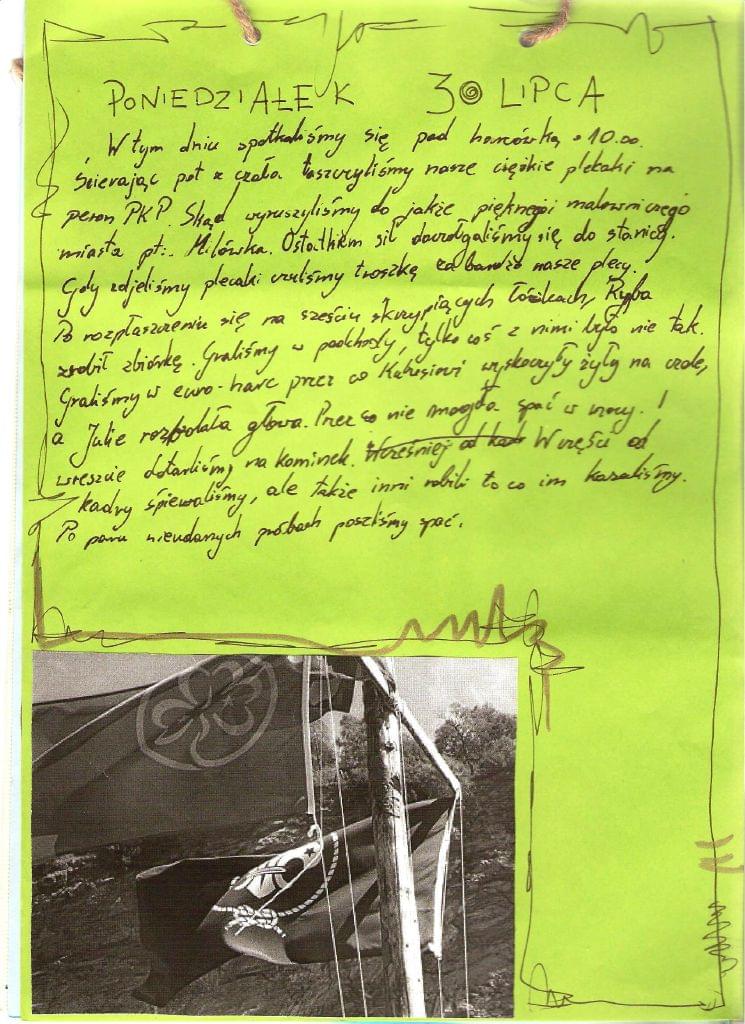 PONIEDZIAŁEK 30 LIPCA
W tym dniu spotkaliśmy się pod harcówką o 10.00.
Ścierając pot z czoła taszczyliśmy nasze ciężkie plecaki na
peron PKP. Skąd wyruszyliśmy do jakże pięknego i malowniczego
miasta pt:. Milówka. Ostatkiem sił doczołgaliśmy się do stanicy.
Gdy zdjeliśmy plecaki czuliśmy troszkę za bardzo nasze plecy.
Po rozpłaszczeniu się na sześciu skrzypiących łóżkach, Ryba
zrobił zbiórkę. Graliśmy w podchody, tylko coś z nimi było nie tak.
Graliśmy w euro-harc przez co wyskoczyły żyły na czole,
a Julie rozbolała głowa. Przez co nie mogła spać w nocy. I
wreszcie dotarliśmy na kominek. Wcześniej od kad W części od
kadry śpiewaliśmy, ale także inni robili to co im kazaliśmy.
Po paru nieudanych próbach poszliśmy spać.